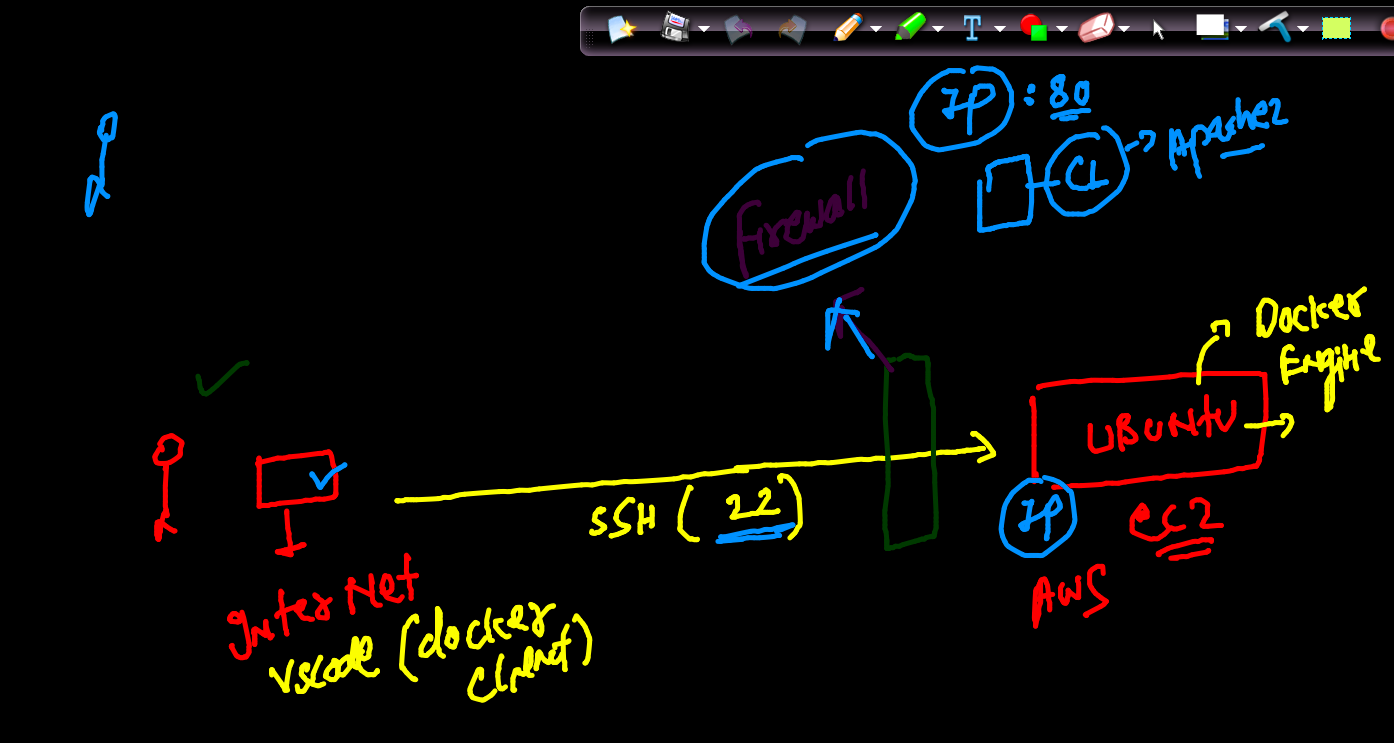 IP : 80
C1 → Apache2
Firewall
Docker
Engine
UBUNTU
SSH ( 22 )
IP
ec2
AWS
InterNet
vscode (docker
client)